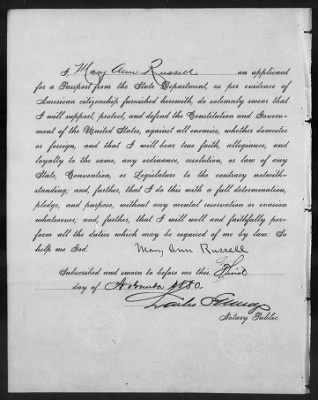 I, Mary Ann Russell an applicant
for a Passport from the State Department, as per evidence of
American citizenship furnished herewith, do solemnly swear that
I will support, protect, and defend the Constitution and Govern-
ment of the United States, against all enemies, whether domestic
or foreign, and that I will bear true faith, allegiance, and
loyalty to the same, any ordinance, resolution, or law of any
State, Convention, or Legislature to the contrary notwith-
standing, and, further, that I do this with a full determination,
pledge, and purpose, without any mental reservation or evasion
whatsoever; and, further, that I will well and faithfully perform
all the duties which may be required of me by law: So
help me God.
Mary Ann Russell
Subscribed and sworn to before me this
day of 1880.
Notary Public.